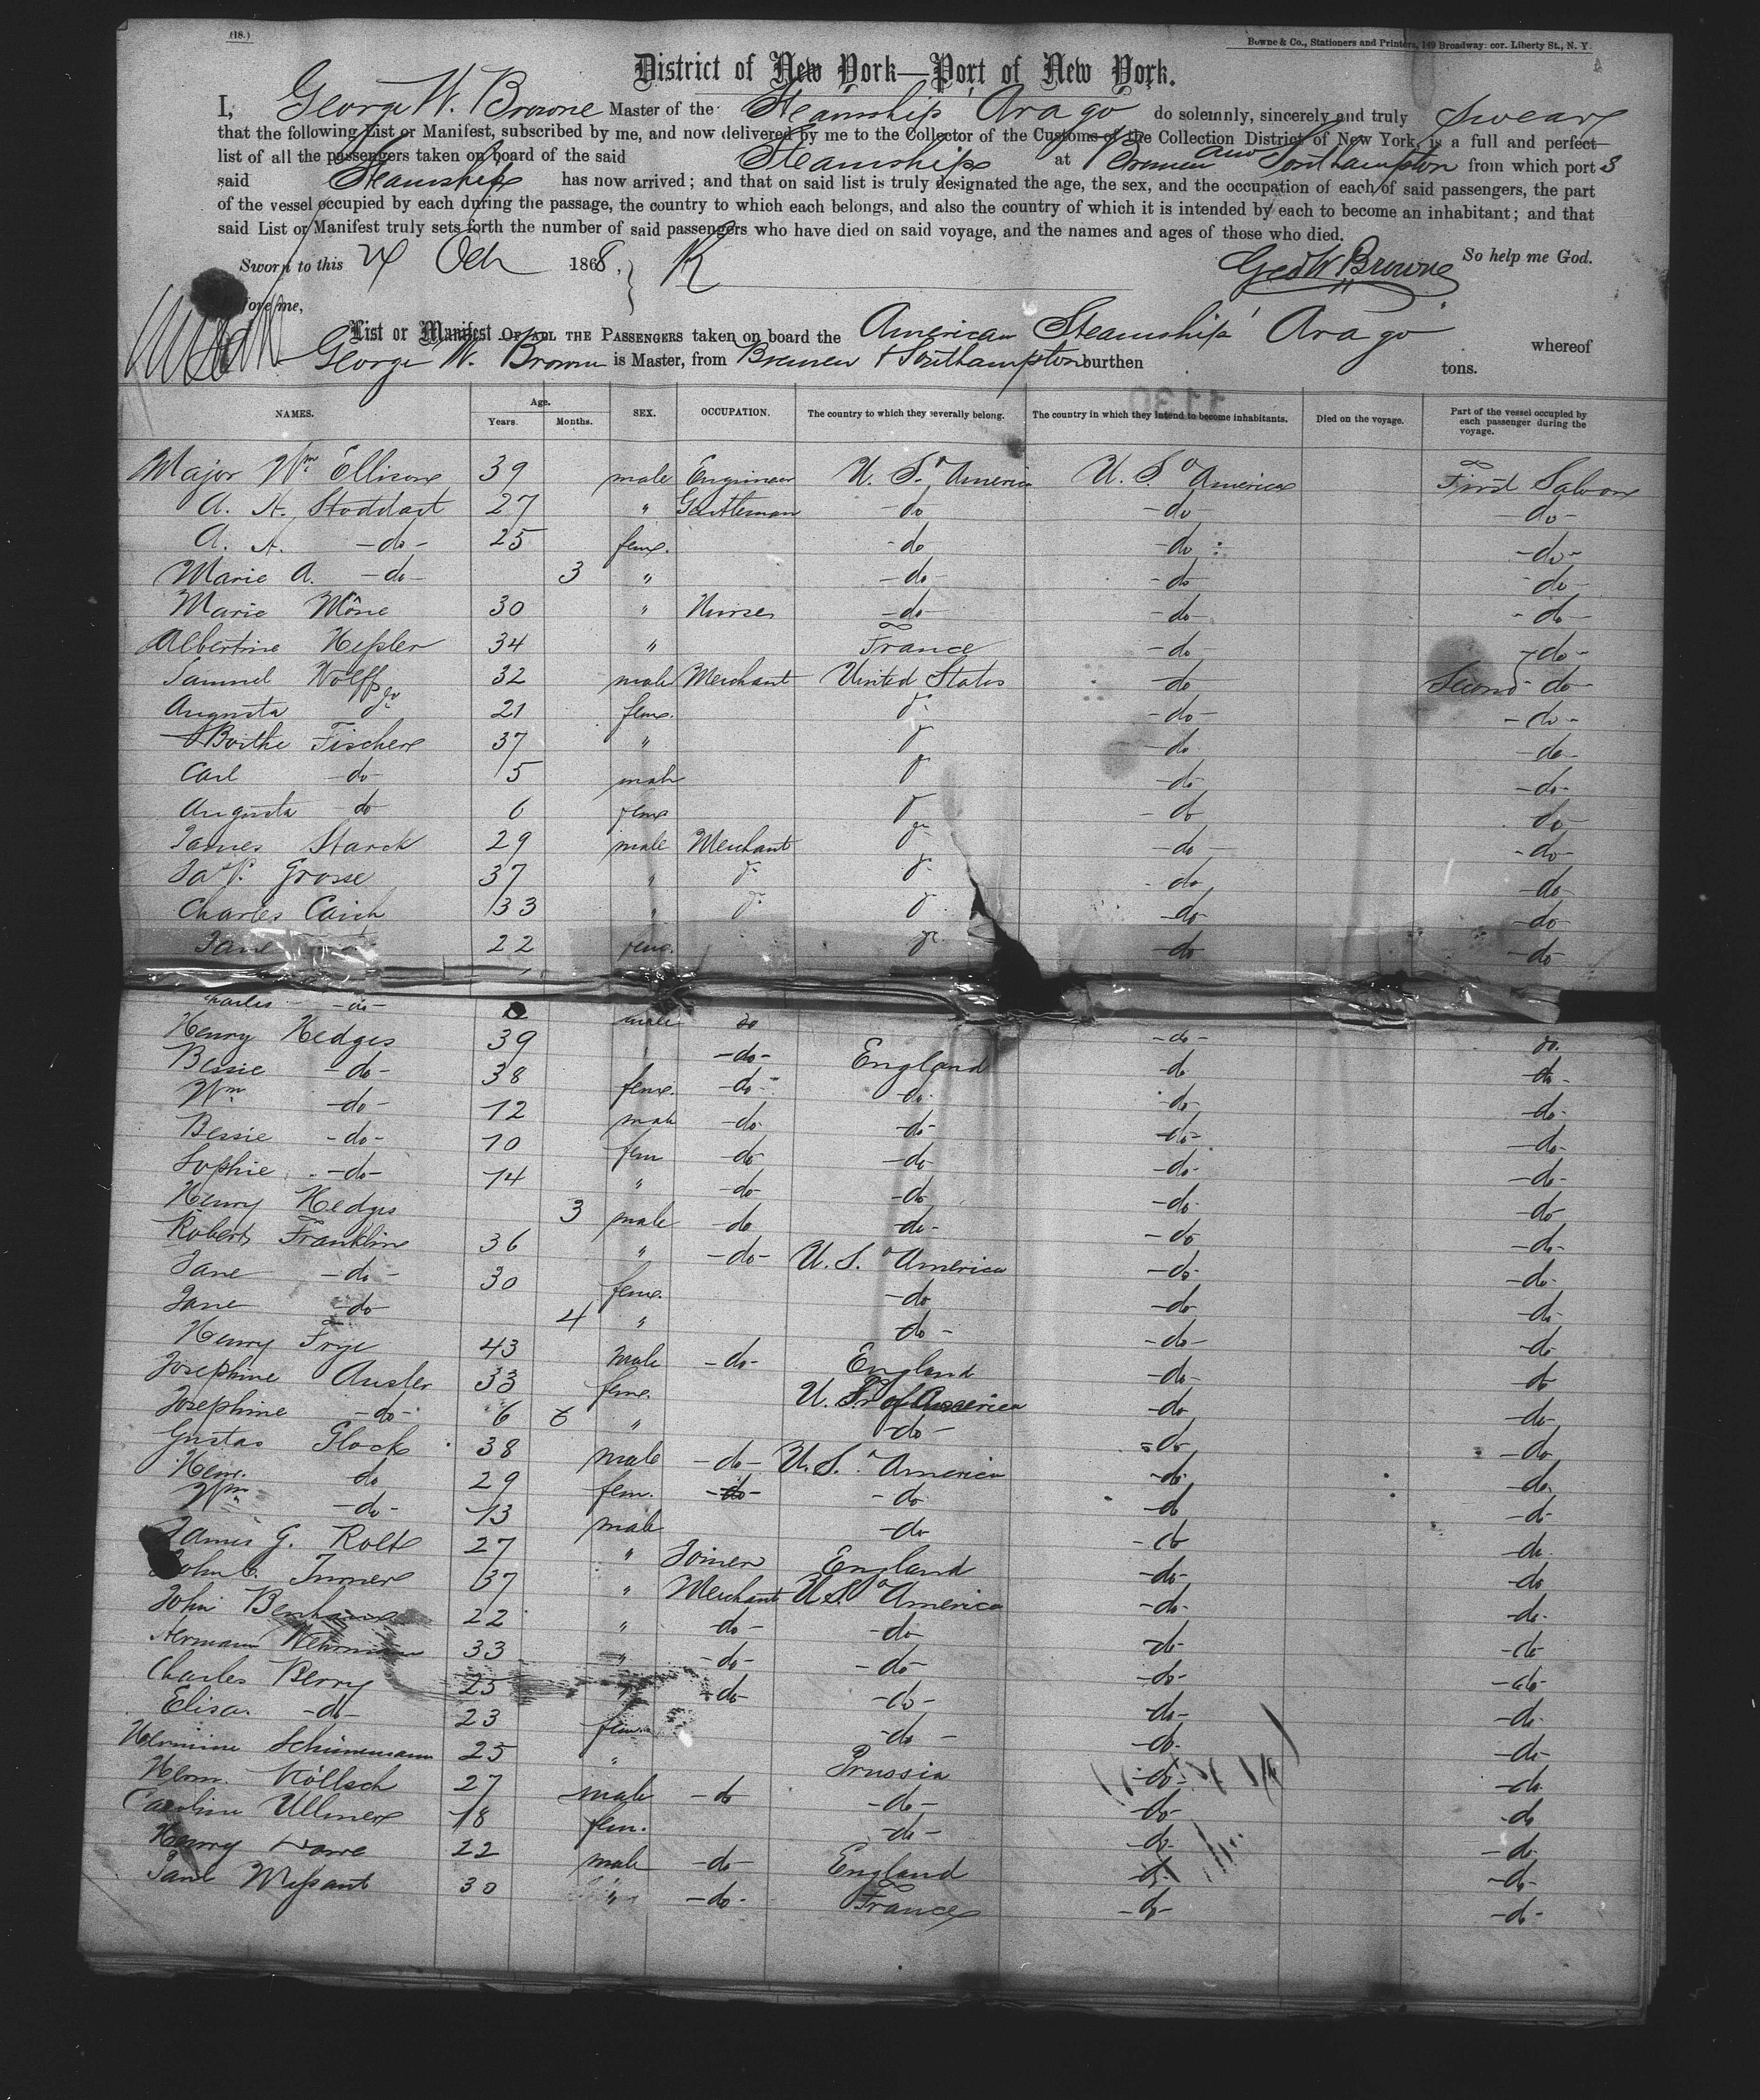 (18.)
Bowne & Co., Stationers and Printers, 149 Broadway: cor. Liberty St., N. Y.
District of New York—Port of New York.
I, George W. Browne Master of the Steamship Arago do solemnly, sincerely and truly swear
that the following List or Manifest, subscribed by me, and now delivered by me to the Collector of the Customs of the Collection District of New York, is a full and perfect
list of all the passengers taken on board of the said Steamship at Bremen and Southampton from which port s
said Steamship has now arrived; and that on said list is truly designated the age, the sex, and the occupation of each of said passengers, the part
of the vessel occupied by each during the passage, the country to which each belongs, and also the country of which it is intended by each to become an inhabitant; and that
said List or Manifest truly sets forth the number of said passengers who have died on said voyage, and the names and ages of those who died.
Sworn to this 24 Oct 1868, So help me God.
Geo W Browne
fore me,
List or Manifest OF ALL THE PASSENGERS taken on board the American Steamship Arago whereof
George W. Brown is Master, from Bremen & Southampton burthen tons.
NAMES. Age. Years. Months. SEX. OCCUPATION. The country to which they severally belong. The country in which they intend to become inhabitants. Died on the voyage. Part of the vessel occupied by each passenger during the voyage.
Major Wm Ellison 39 male Engineer U. S. America U. S. America First Saloon
A. H. Stoddart 27 " Gentleman -do- -do- -do-
A. A. -do- 25 feme. -do -do -do-
Marie A. -do- 3 " -do- -do- -do-
Marie Mône 30 " Nurse -do- -do- -do-
Albertine Heßler 34 " France -do- -do-
Samuel Wolff 32 male Merchant United States -do Second do-
Augusta do 21 feme. do -do- -do-
Fischer 37 " do -do -do-
Carl -do- 5 male do -do- -do-
Augusta do 6 feme do -do -do-
James Starck 29 male Merchant do -do- -do-
Grosse 37 " do do -do -do-
Charles Caich 33 " do do -do- -do-
Jane 22 feme. do -do -do-
Charles -do- male do -do- do.
Henry Hedges 39 " -do- England -do -do-
Bessie -do- 38 feme. -do- -do- -do- -do-
Wm -do- 12 male -do- -do- -do- -do-
Bessie -do- 10 fem -do- -do- -do- -do-
Sophie -do- 14 " -do- -do -do- -do-
Henry Hedges 3 male -do -do- -do -do-
Robert Franklin 36 " -do- U. S. America -do- -do-
Jane -do- 30 feme. -do -do -do-
Jane -do 4 " -do- -do- -do-
Henry Frye 43 male -do- England -do- -do
Josephine Ausler 33 feme. U. S. of America -do -do-
Josephine -do- 6 " -do- -do -do
Gustav Glock 38 male -do- U. S. America -do- -do.
do 29 fem. -do- -do -do -do-
Wm -do- 13 male -do -do -do.
James G. Rolt 27 " Joiner England -do- -do
John C. Turner 37 " Merchant U. S. America -do- -do-
John 22 " -do- -do- -do- -do-
Hermann Wehrmann 33 " -do- -do- -do- -do-
Charles Berry 25 " -do- -do- -do- -do-
Elisa -do- 23 fem. -do- -do- -do-
Hermine Schünemann 25 " Prussia -do- -do.
Herm. Köllsch 27 male -do -do- -do- -do
Caroline Ullmer 18 fem. -do- -do- -do-
Henry 22 male -do- England -do- -do-
30 " -do- France -do- -do-